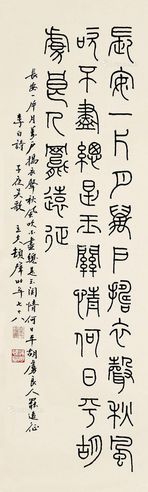 長安一片月萬戶擣衣聲秋風
吹不盡總是玉關情何日平胡
虜良人罷遠征
長安一片月萬戶擣衣聲秋風吹不盡總是玉關情何日平胡虜良人罷遠征
李白詩 子夜吳歌 時年七十八